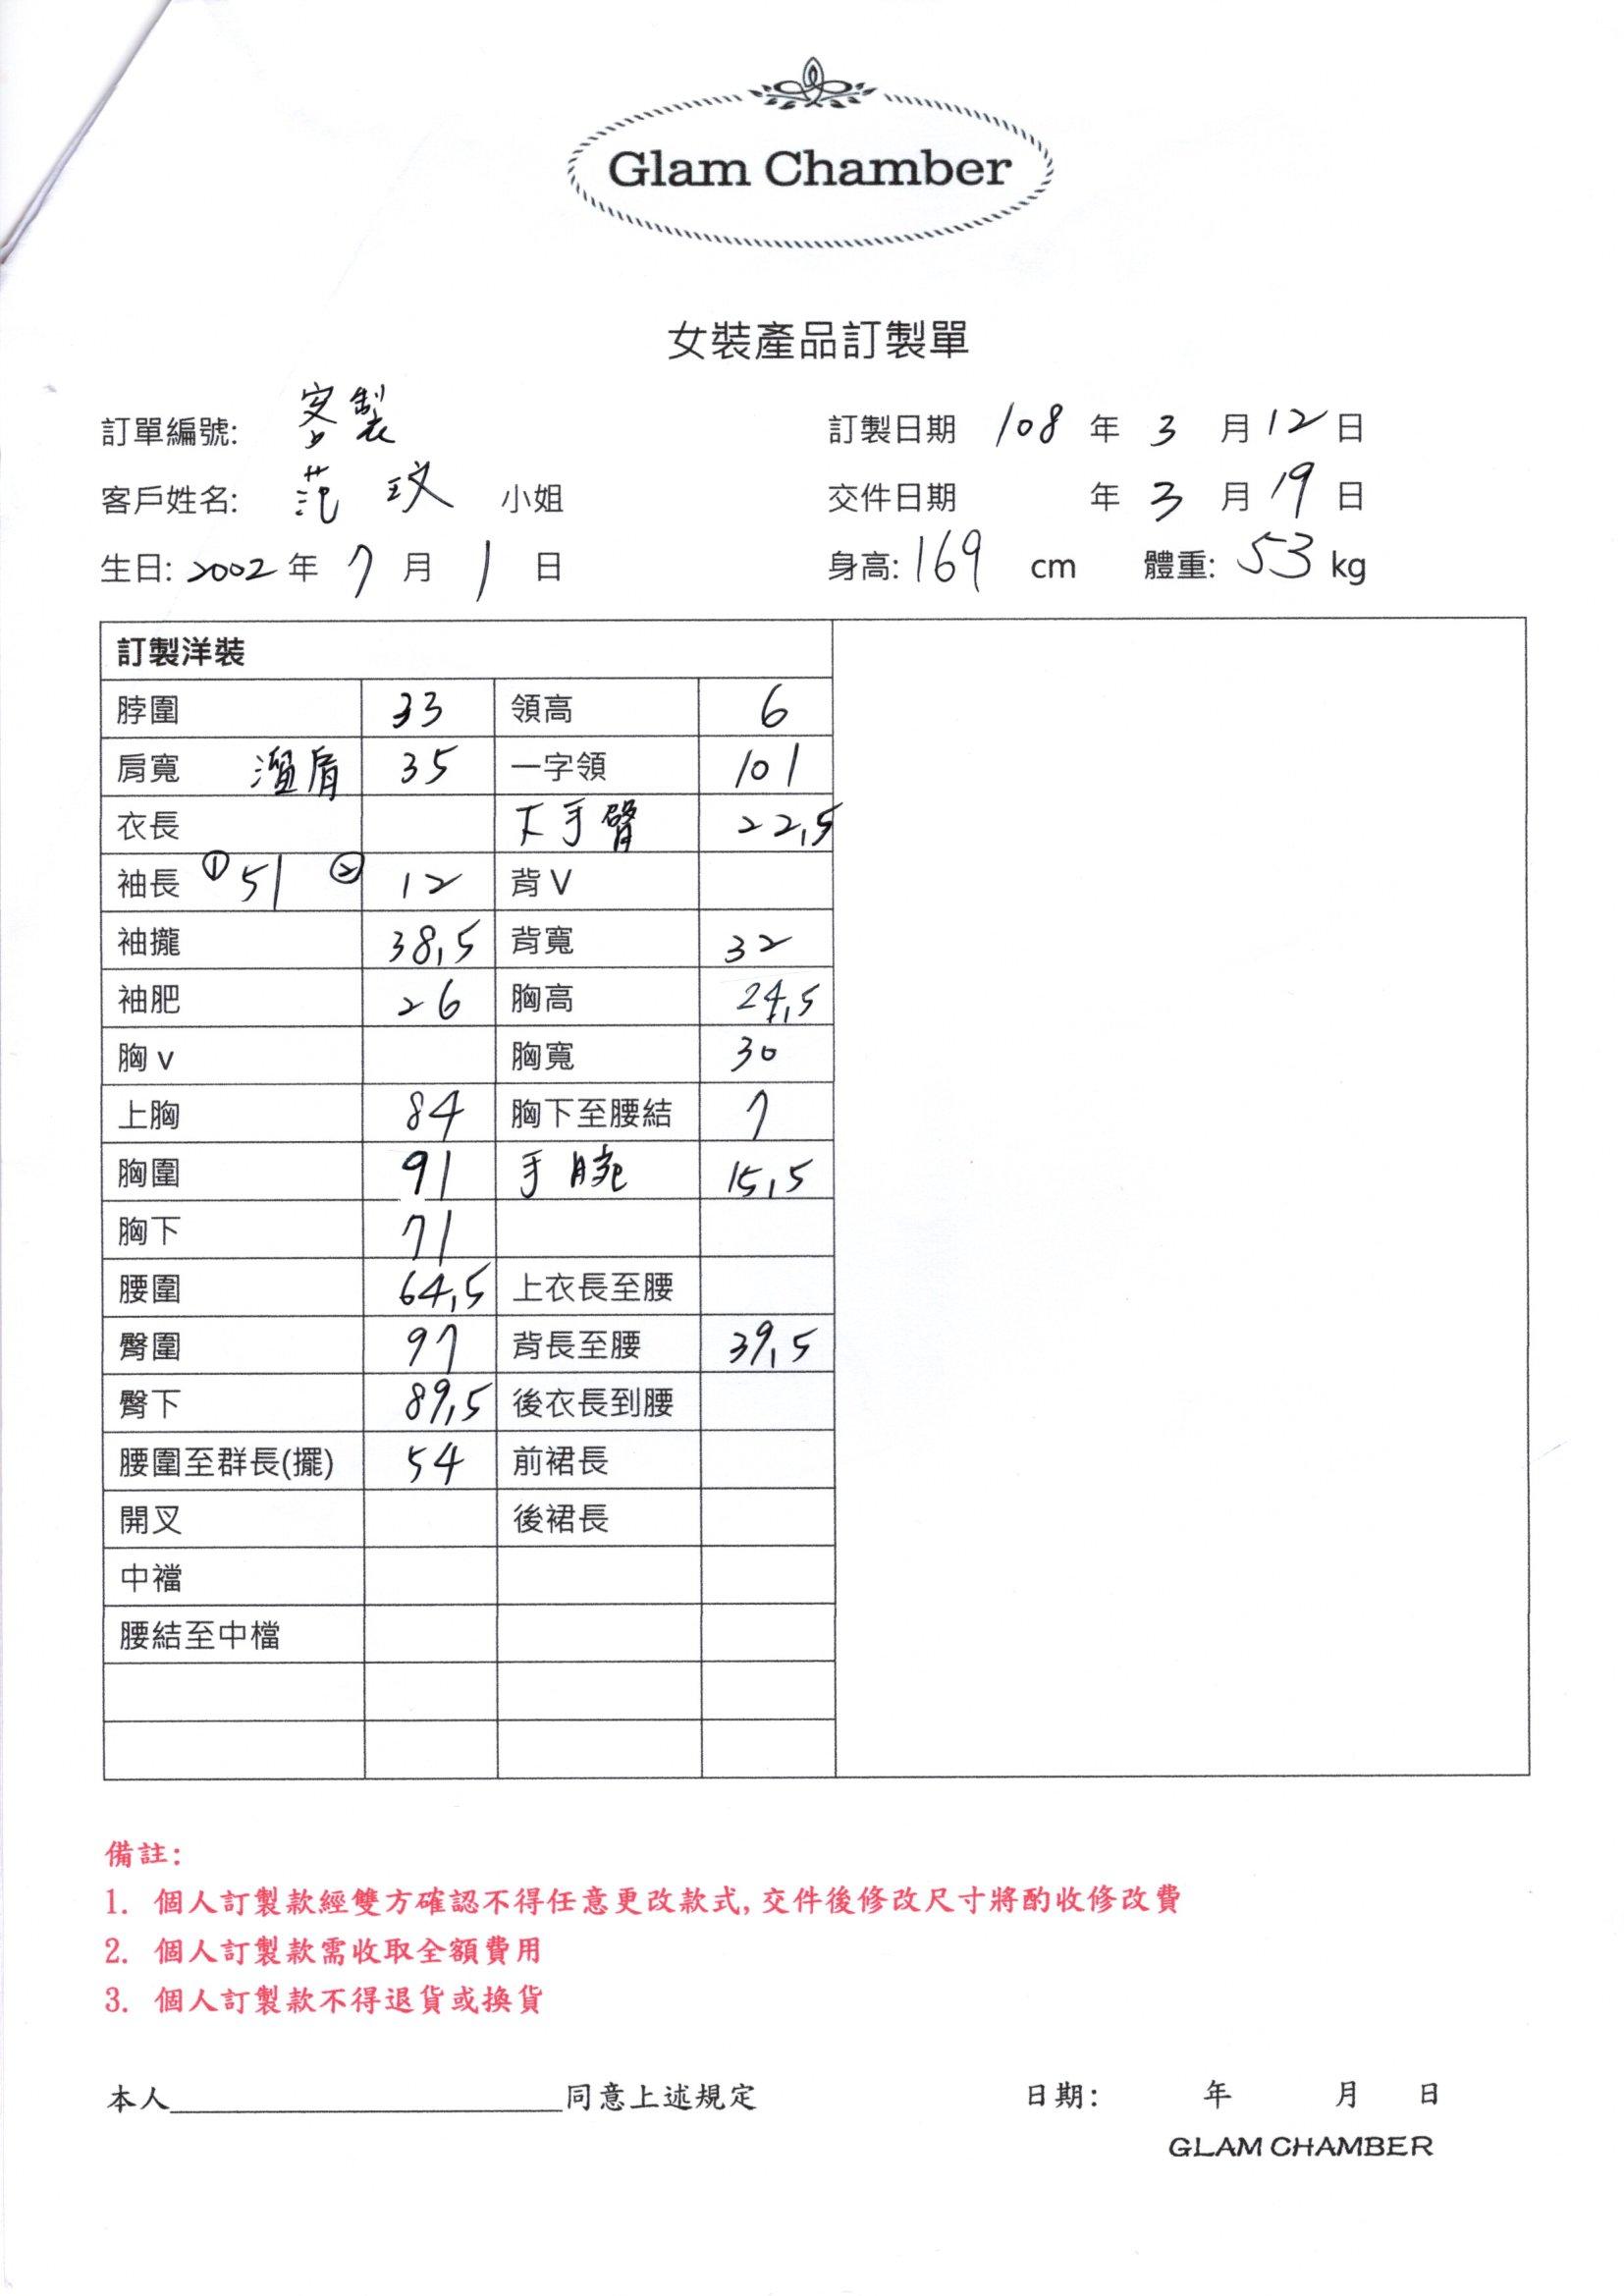 Glam Chamber
女裝產品訂製單
訂單編號: 客製 訂製日期 108 年 3 月 12 日
客戶姓名: 范 玟 小姐 交件日期 年 3 月 19 日
生日: 2002 年 7 月 1 日 身高: 169 cm 體重: 53 kg
訂製洋裝
脖圍 33 領高 6
肩寬 溜肩 35 一字領 101
衣長 下手臂 22,5
袖長 ① 51 ② 12 背 V
袖攏 38,5 背寬 32
袖肥 26 胸高 24,5
胸 v 胸寬 30
上胸 84 胸下至腰結 7
胸圍 91 手腕 15,5
胸下 71
腰圍 64,5 上衣長至腰
臀圍 97 背長至腰 39,5
臀下 89,5 後衣長到腰
腰圍至群長(擺) 54 前裙長
開叉 後裙長
中襠
腰結至中檔
備註:
1. 個人訂製款經雙方確認不得任意更改款式, 交件後修改尺寸將酌收修改費
2. 個人訂製款需收取全額費用
3. 個人訂製款不得退貨或換貨
本人________________同意上述規定 日期: 年 月 日
GLAM CHAMBER